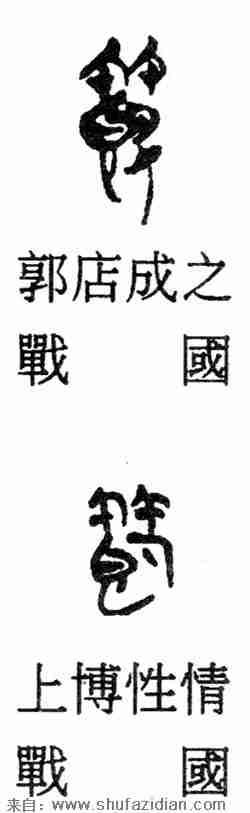 郭店成之
戰國
上博性情
戰國
来自：www.shufazidian.com